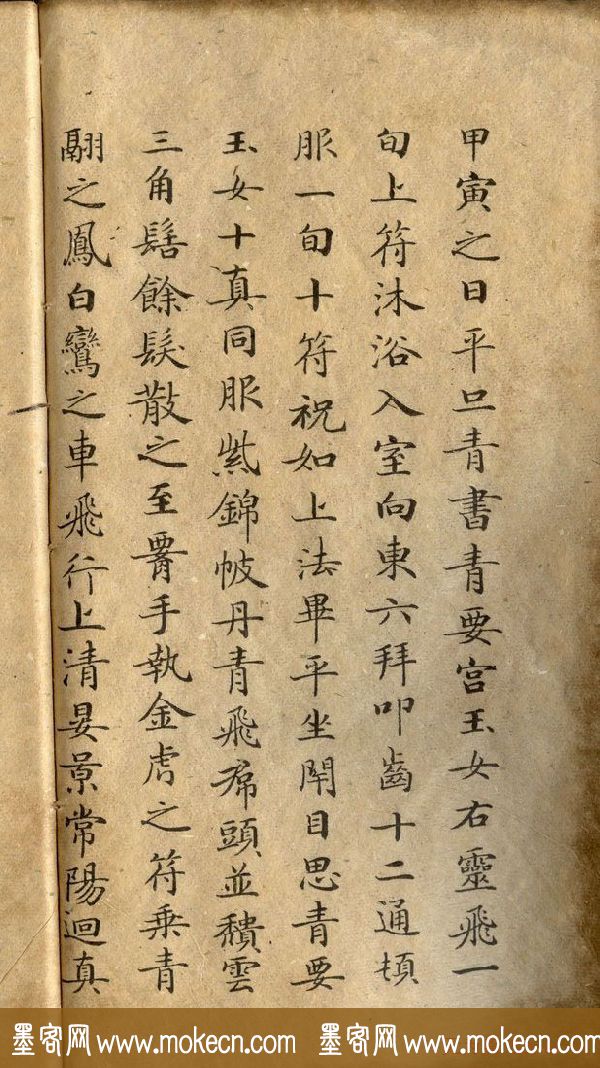 甲寅之日平旦青書青要宮玉女右靈飛一
旬上符沐浴入室向東六拜叩齒十二通頓
服一旬十符祝如上法畢平坐閇目思青要
玉女十真同服紫錦帔丹青飛帬頭並穨雲
三角髻餘髮散之至𦝫手執金虎之符乗青
翮之鳳白鸞之車飛行上清晏景常陽迴真
墨客网 www.mokecn.com 墨客网 www.mokecn.com